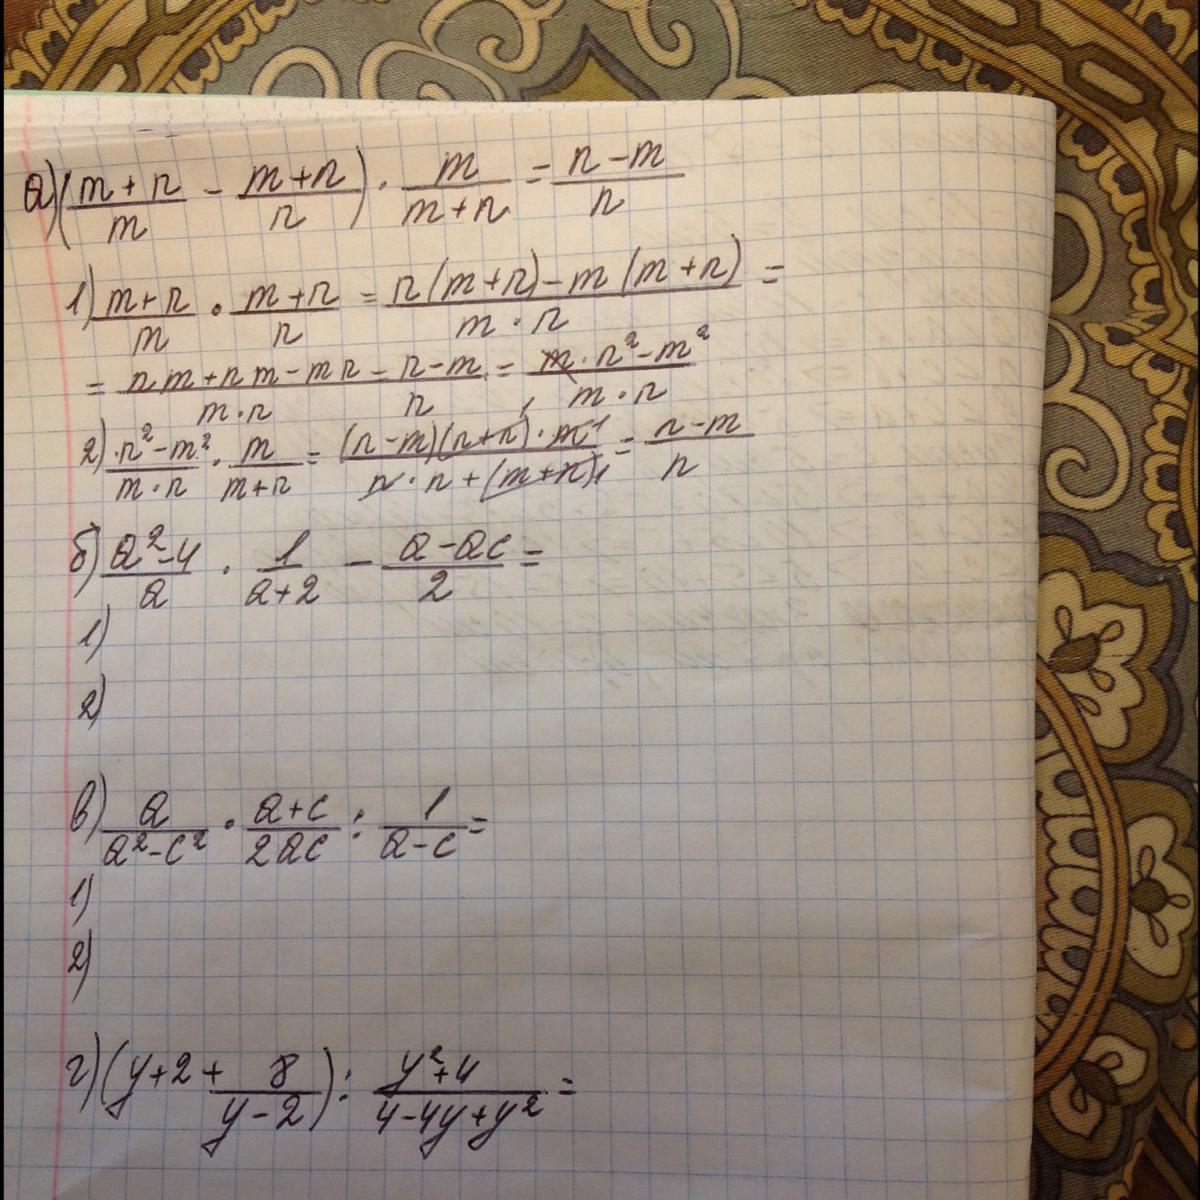 а) ((m+n)/m - (m+n)/n) · m/(m+n) = (n-m)/n
1) (m+n)/m · (m+n)/n = (n(m+n)-m(m+n))/(m·n) =
= (nm+nm-mn)/(m·n) = (n-m)/n = (m·n²-m²)/(m·n)
2) (·n²-m²)/(m·n) · m/(m+n) = ((n-m)(n+n)·m 1)/(n·n+(m+n)1) = (n-m)/n
б) (a²-4)/a · 1/(a+2) - (a-ac)/2 =
1)
2)
в) a/(a²-c²) · (a+c)/(2ac) : 1/(a-c) =
1)
2)
г) (y+2+ 8/(y-2)) : (y²+4)/(4-4y+y²) =